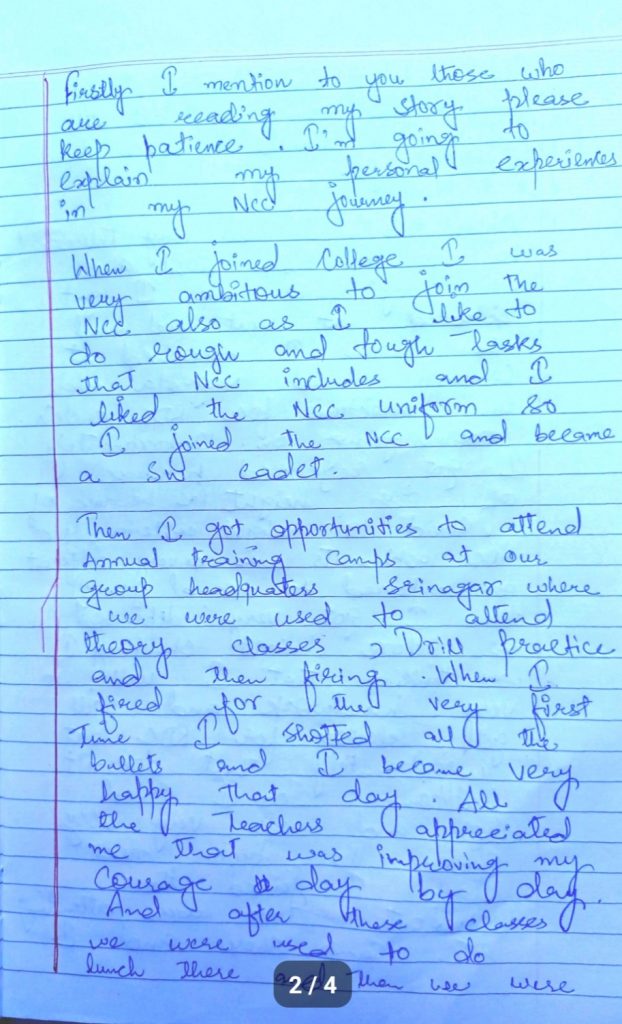 Firstly I mention to you those who
are reading my story please
keep patience. I'm going to
explain my personal experiences
in my Ncc journey.
When I joined College I was
very ambitious to join the
Ncc also as I like to
do rough and tough Tasks
that Ncc includes and I
liked the Ncc uniform so
I joined the NCC and became
a SW cadet.
Then I got opportunities to attend
Annual training camps at our
group headquaters Srinagar where
we were used to attend
theory classes, Drill practice
and then firing. When I
fired for the very first
Time I shotted all the
bullets and I became very
happy that day. All
the Teachers appreciated
me that was improving my
Courage day by day.
And after these classes
we were used to do
lunch there then we were
2/4